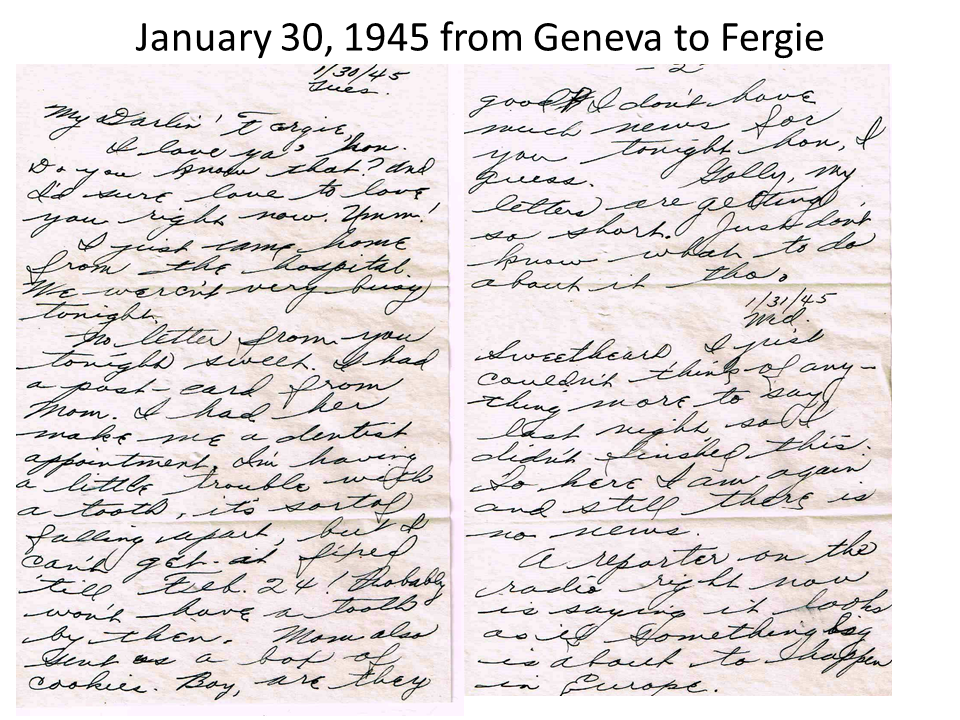 January 30, 1945 from Geneva to Fergie
1/30/45
Tues.
My Darlin' Fergie,
I love ya', hon.
Do you know that? And
I'd sure love to love
you right now. Ymm!
I just came home
from the hospital.
We weren't very busy
tonight.
No letter from you
tonight sweet. I had
a post-card from
Mom. I had her
make me a dentist
appointment. I'm having
a little trouble with
a tooth, it's sort of
falling apart, but I
can't get it fixed
'till Feb. 24! Probably
won't have a tooth
by then. Mom also
sent us a box of
cookies. Boy, are they
- 2 -
good! I don't have
much news for
you tonight hon, I
guess. Golly, my
letters are getting
so short. Just don't
know what to do
about it tho.
1/31/45
Wed.
Sweetheart, I just
couldn't think of any-
thing more to say
last night so I
didn't finished this.
So here I am again
and still there is
no news.
A reporter on the
radio right now
is saying it looks
as if something big
is about to happen
in Europe.